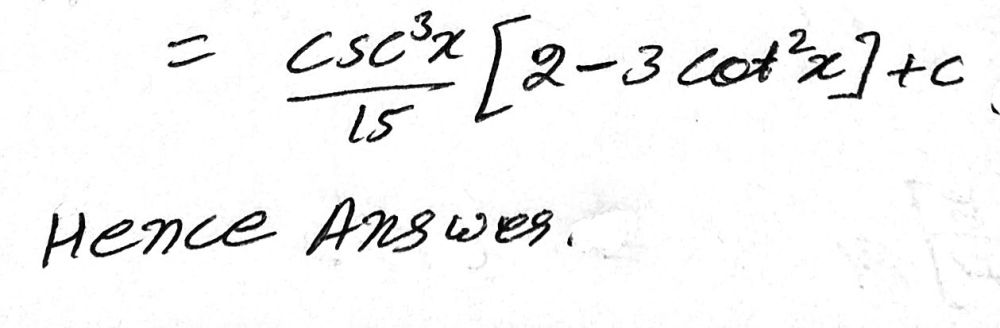 = csc³x/15 [2-3 cot²x]+c
Hence Answer.